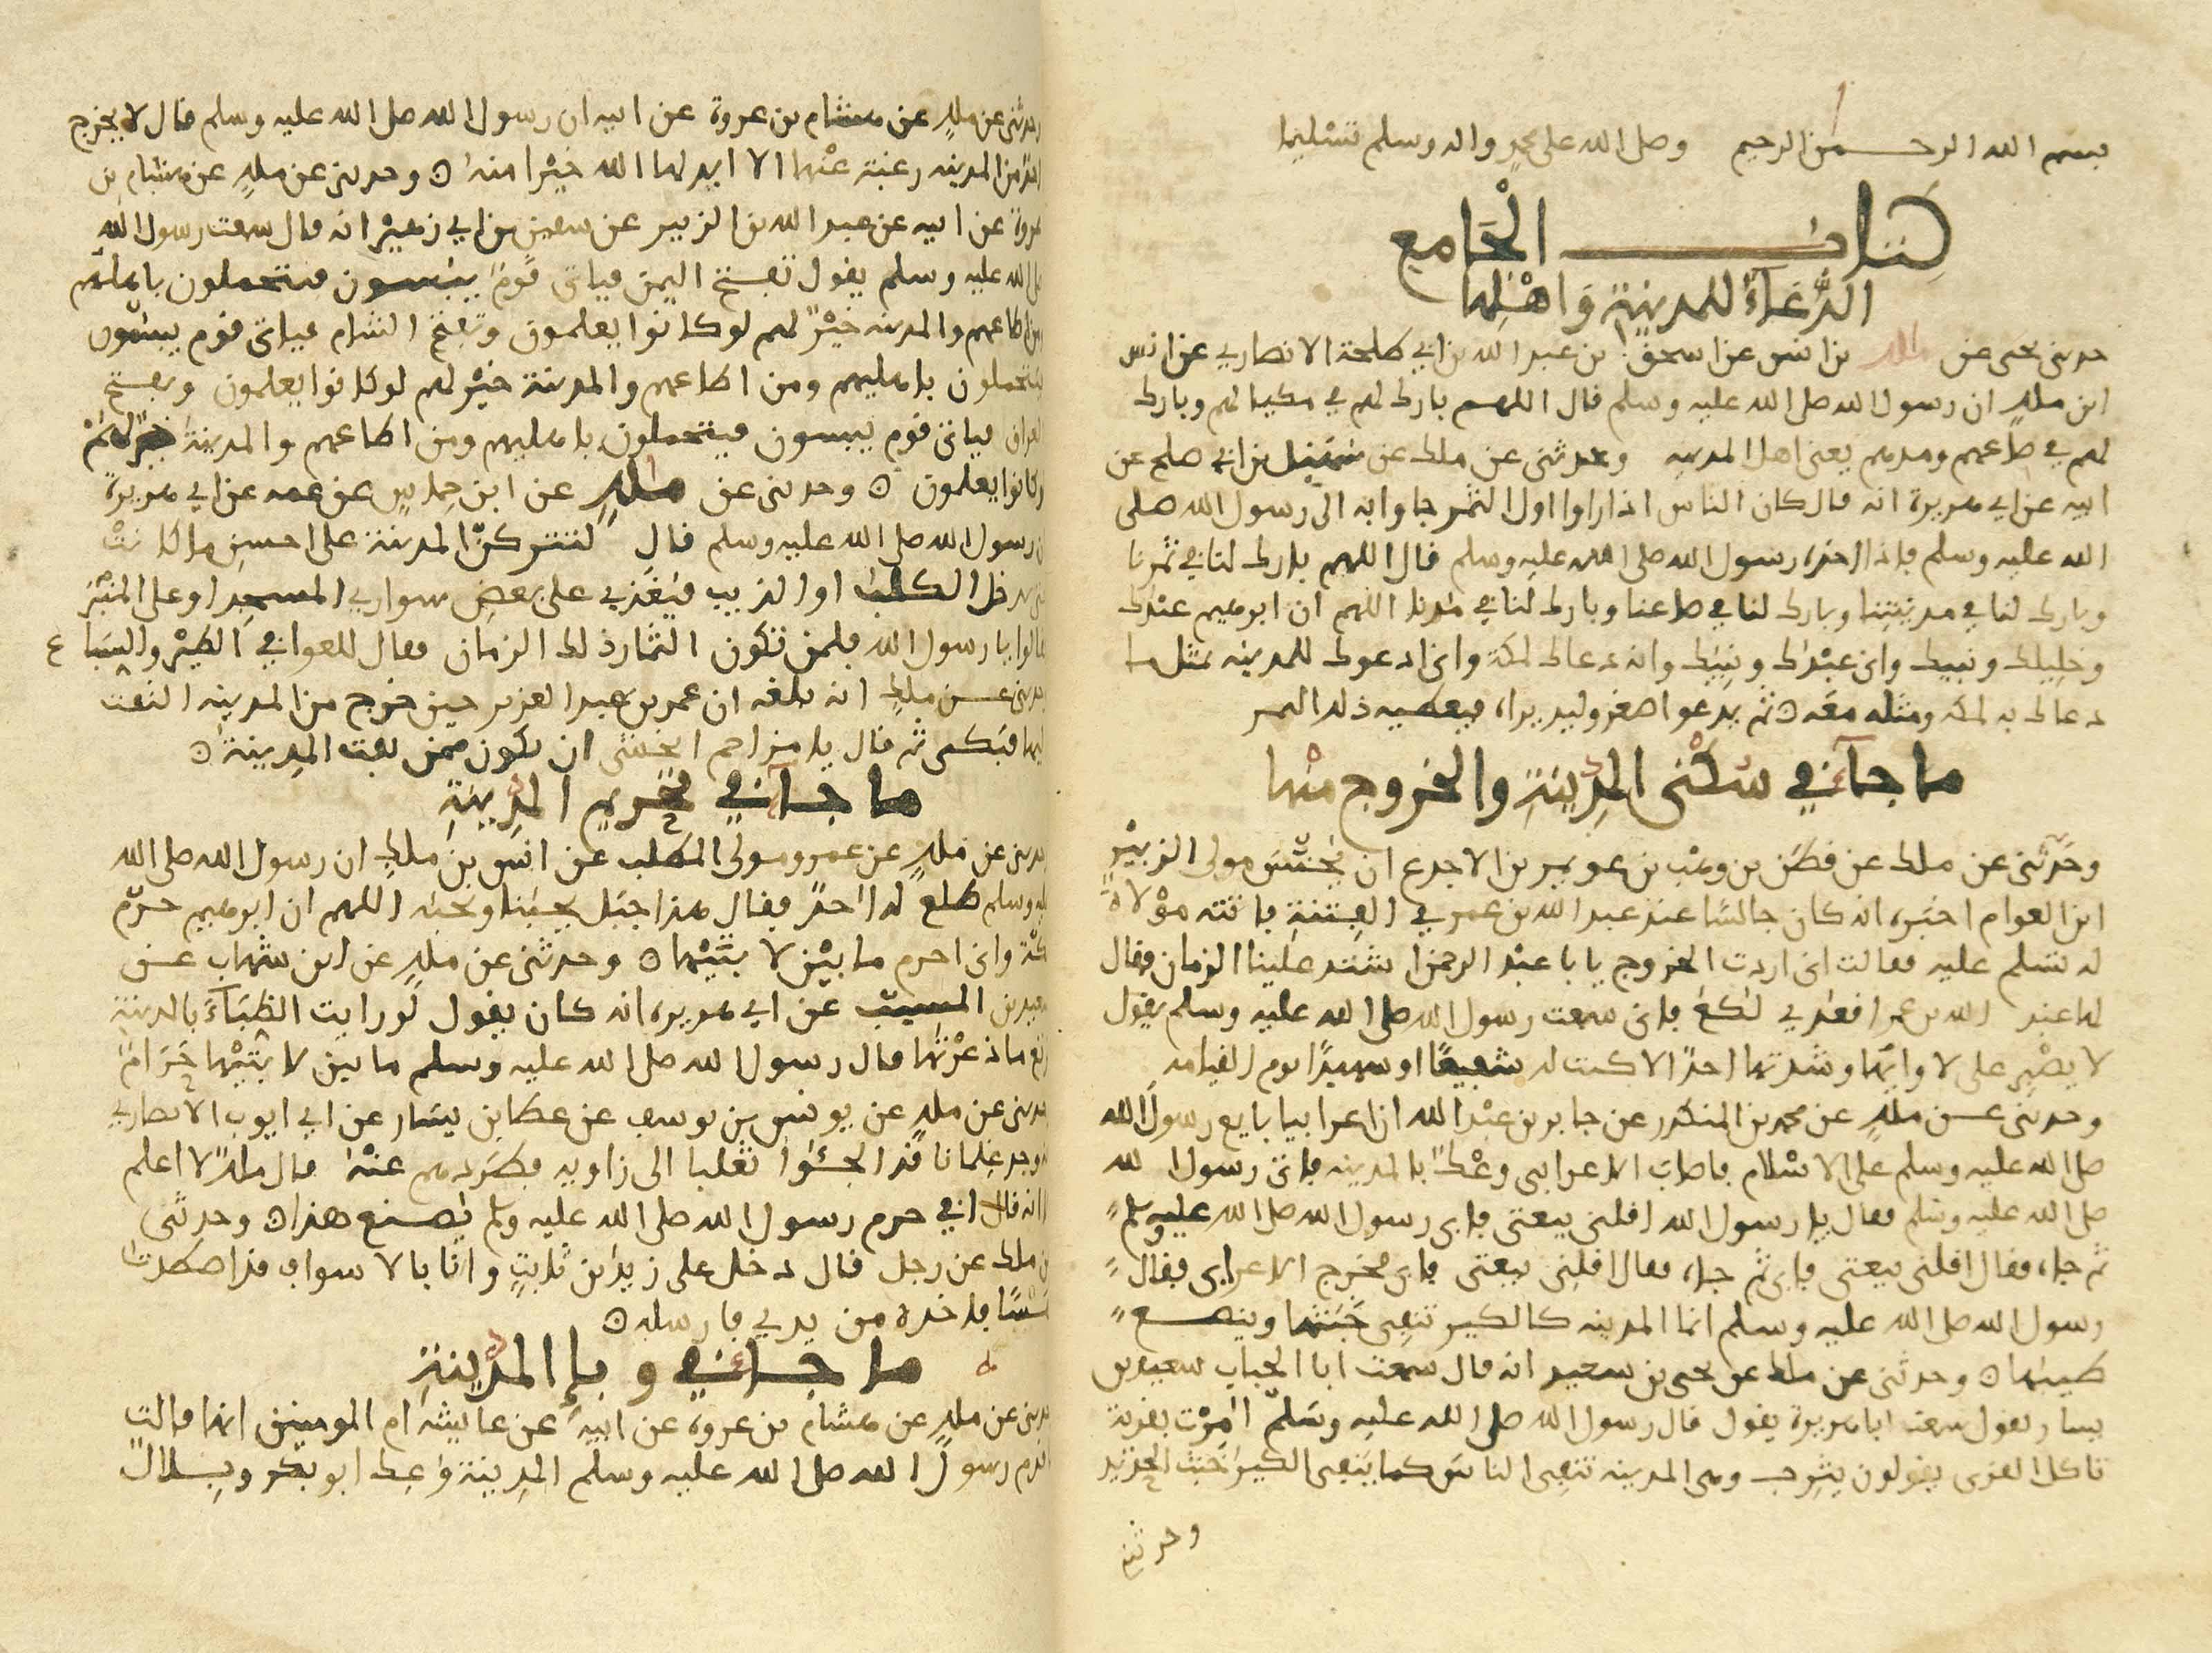 بسم الله الرحمن الرحيم وصلى الله على محمد واله وسلم تسليما
كتاب الجامع
الدعاء للمدينة واهلها
حدثنى يحيى عن ملك بن انس عن اسحق بن عبد الله بن ابي طلحة الانصاري عن انس
ابن ملك ان رسول الله صلى الله عليه وسلم قال اللهم بارك لهم في مكيالهم وبارك
لهم في صاعهم ومدهم يعنى اهل المدينه وحدثنى عن ملك عن سهيل بن ابي صلح عن
ابيه عن ابي هريرة انه قال كان الناس اذا راوا اول الثمر جاوا به الى رسول الله صلى
الله عليه وسلم فاذا اخذه رسول الله صلى الله عليه وسلم قال اللهم بارك لنا في ثمرنا
وبارك لنا في مدينتنا وبارك لنا في صاعنا وبارك لنا في مدنا اللهم ان ابرهيم عبدك
وخليلك ونبيك وانى عبدك ونبيك وانه دعاك لمكة وانى ادعوك للمدينه بمثل ما
دعاك به لمكه ومثله معه ثم يدعوا اصغر وليد يراه فيعطيه ذلك الثمر
ما جآء في سكنى المدينة والخروج منها
وحدثنى عن ملك عن قطن بن وهب بن عويمر بن الاجدع ان يحنس مولى الزبير
ابن العوام اخبره انه كان جالسا عند عبد الله بن عمر في الفتنة فاتته مولاة
له تسلم عليه فقالت انى اردت الخروج يابا عبد الرحمن اشتد علينا الزمان فقال
لها عبد الله بن عمر اقعدي لكع فانى سمعت رسول الله صلى الله عليه وسلم يقول
لا يصبر على لاوائها وشدتها احد الا كنت له شفيعا او شهيدا يوم القيامه
وحدثنى عن ملك عن محمد بن المنكدر عن جابر بن عبد الله ان اعرابيا بايع رسول الله
صلى الله عليه وسلم على الاسلام فاصاب الاعرابى وعك بالمدينه فاتى رسول الله
صلى الله عليه وسلم فقال يا رسول الله اقلنى بيعتى فابى رسول الله صلى الله عليه وسلم
ثم جاءه فقال اقلنى بيعتى فابى ثم جاءه فقال اقلنى بيعتى فابى فخرج الاعرابى فقال
رسول الله صلى الله عليه وسلم انما المدينه كالكير تنفى خبثها وينصع
طيبها وحدثنى عن ملك عن يحيى بن سعيد انه قال سمعت ابا الحباب سعيد بن
يسار يقول سمعت ابا هريرة يقول قال رسول الله صلى الله عليه وسلم امرت بقرية
تاكل القرى يقولون يثرب وهى المدينه تنفى الناس كما ينفى الكير خبث الحديد
وحدثنى
وحدثنى عن ملك عن هشام بن عروة عن ابيه ان رسول الله صلى الله عليه وسلم قال لا يخرج
احد من المدينه رغبة عنها الا ابدلها الله خيرا منه وحدثنى عن ملك عن هشام بن
عروة عن ابيه عن عبد الله بن الزبير عن سفين بن ابي زهير انه قال سمعت رسول الله
صلى الله عليه وسلم يقول تفتح اليمن فياتى قوم يبسون فيتحملون باهليهم
ومن اطاعهم والمدينه خير لهم لو كانوا يعلمون وتفتح الشام فياتى قوم يبسون
فيتحملون باهليهم ومن اطاعهم والمدينة خير لهم لو كانوا يعلمون وتفتح
العراق فياتى قوم يبسون فيتحملون باهليهم ومن اطاعهم والمدينة خير لهم
لو كانوا يعلمون وحدثنى عن ملك عن ابن حماس عن عمه عن ابي هريرة
ان رسول الله صلى الله عليه وسلم قال لتتركن المدينة على احسن ما كانت
حتى يدخل الكلب او الذيب فيغذي على بعض سواري المسجد او على المنبر
فقالوا يا رسول الله فلمن تكون الثمار ذلك الزمان فقال للعوافي الطير والسباع
وحدثنى عن ملك انه بلغه ان عمر بن عبد العزيز حين خرج من المدينه التفت
اليها فبكى ثم قال يا مزاحم اتخشى ان نكون ممن نفت المدينة
ما جآء في تحريم المدينة
وحدثنى عن ملك عن عمرو مولى المطلب عن انس بن ملك ان رسول الله صلى الله
عليه وسلم طلع له احد فقال هذا جبل يحبنا ونحبه اللهم ان ابرهيم حرم
مكة وانى احرم ما بين لابتيها وحدثنى عن ملك عن ابن شهاب عن
سعيد بن المسيب عن ابي هريره انه كان يقول لو رايت الظباء بالمدينة
ترتع ما ذعرتها قال رسول الله صلى الله عليه وسلم ما بين لابتيها حرام
وحدثنى عن ملك عن يونس بن يوسف عن عطا بن يسار عن ابي ايوب الانصاري
انه وجد غلمانا قد الجئوا ثعلبا الى زاويه فطردهم عنه قال ملك لا اعلم
الا انه قال افي حرم رسول الله صلى الله عليه وسلم يصنع هذا وحدثنى
عن ملك عن رجل قال دخل على زيد بن ثابت وانا بالاسواف قد اصطدت
نهسا فاخذه من يدي فارسله
ما جآء في وباء المدينة
وحدثنى عن ملك عن هشام بن عروه عن ابيه عن عايشه ام المومنين انها قالت
لما قدم رسول الله صلى الله عليه وسلم المدينة وعك ابو بكر وبلال